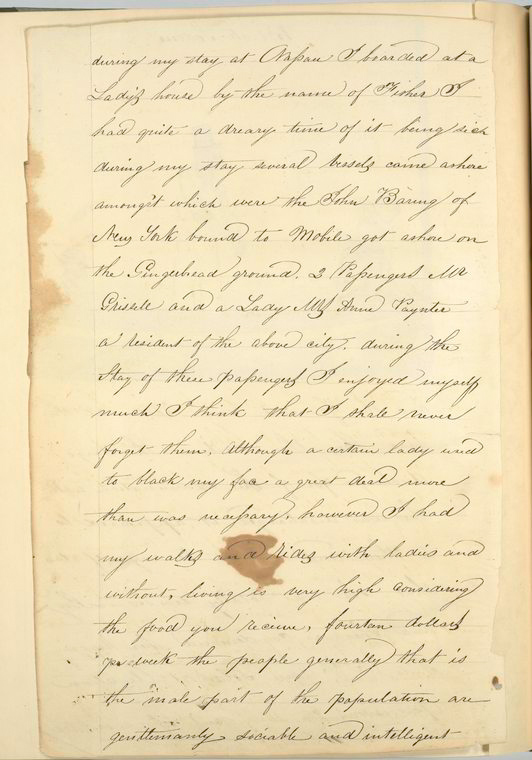 during my stay at Naſsau I boarded at a
Lady's house by the name of Fisher I
had quite a dreary time of it being sick
during my stay several vessels came ashore
amongst which were the John Baring of
New York bound to Mobile got ashore on
the Gingerbead ground. 2 Paſsengers Mr
Grissele and a Lady Mrs Anne Paynter
a resident of the above city. during the
Stay of these paſsengers I enjoyed myself
much I think that I shale never
forget them. Although a certain lady used
to black my face a great deal more
than was neceſsary. however I had
my walks and rides with ladies and
without, living is very high considering
the food you receive, fourteen dollars
per week the people generally that is
the male part of the population are
gentlemanly sociable and intelligent